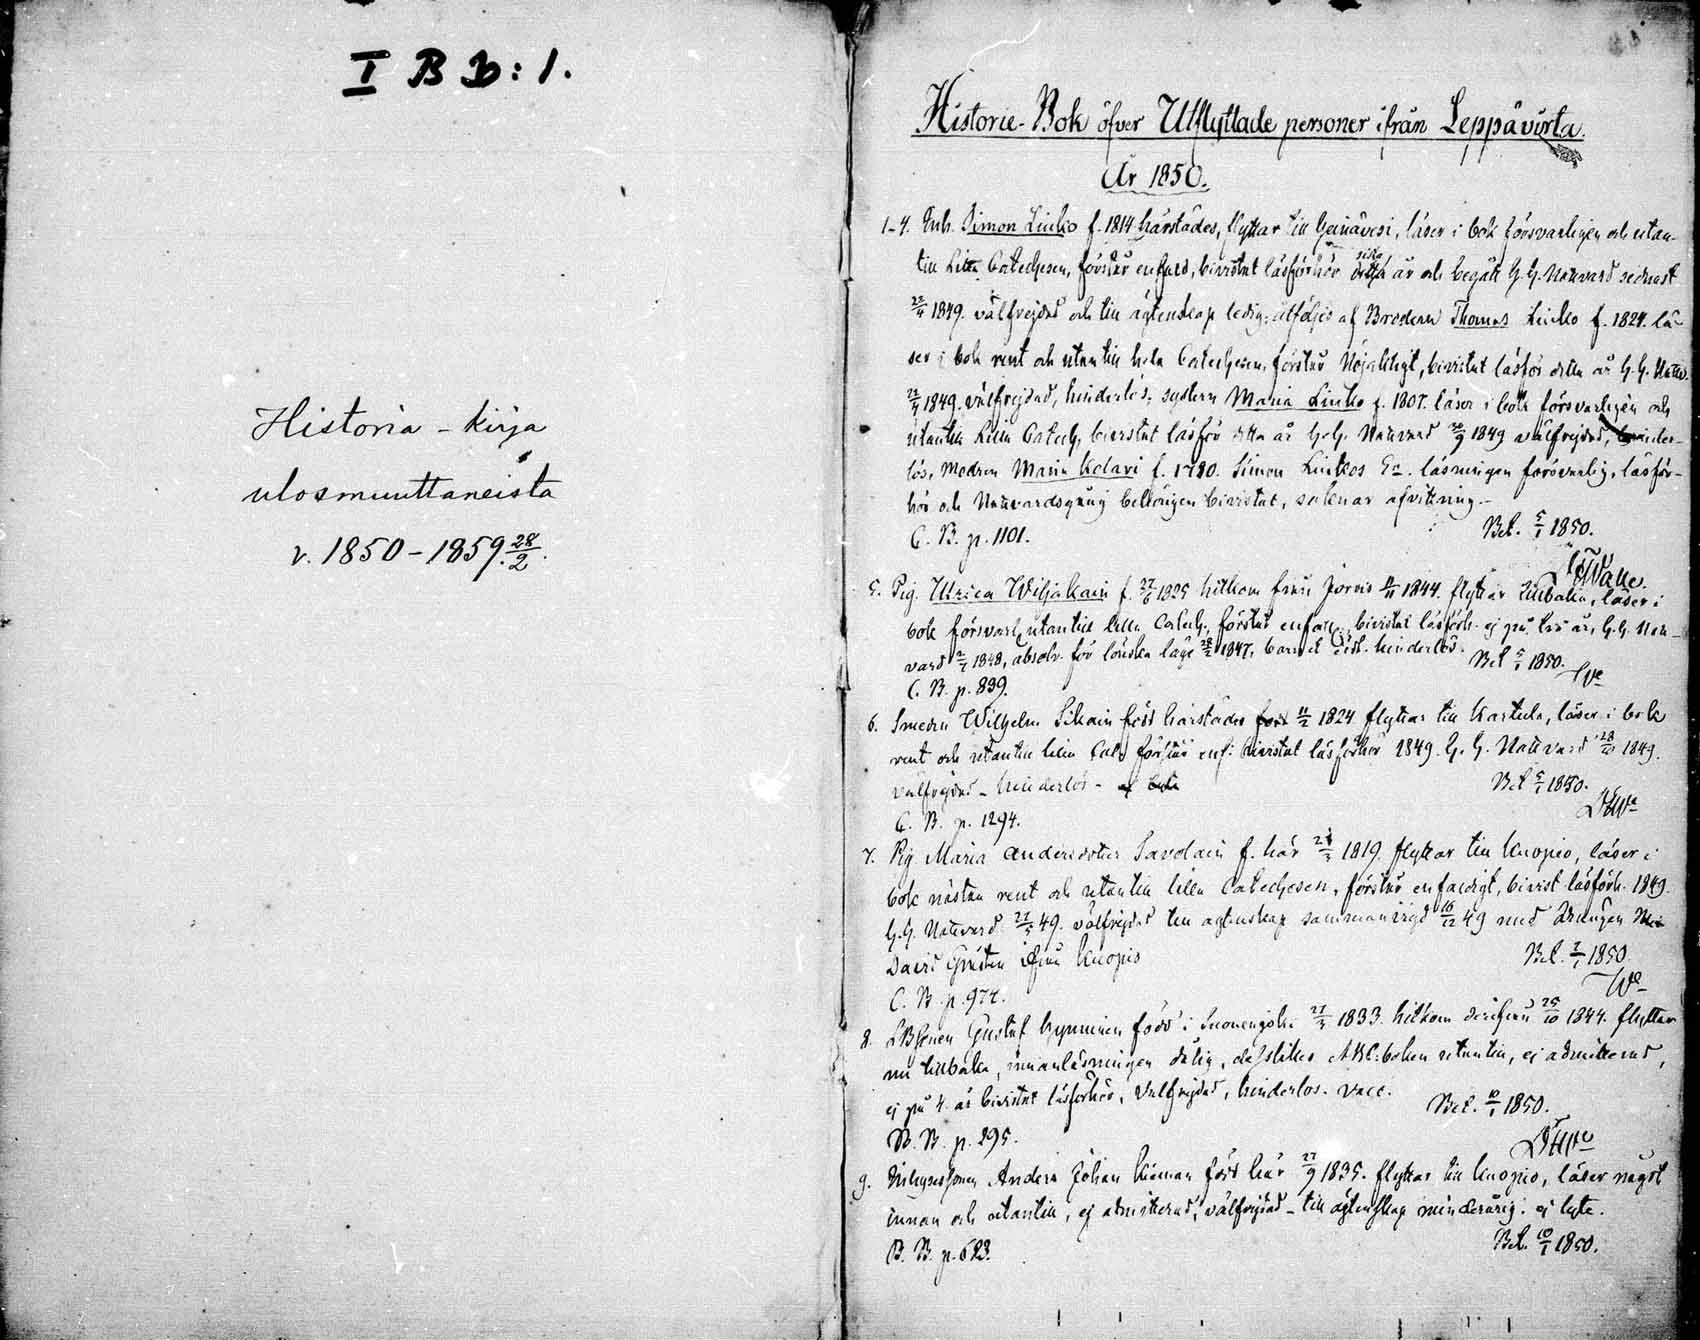 I B b: 1.
Historia - kirja
ulosmuuttaneista
v. 1850 - 1859 28/2.
Historie-Bok öfver Utflyttade personer ifrån Leppävirta.
År 1850.
1-4. Inh. Simon Linko f. 1814 härstädes, flyttar till Heinävesi, läser i bok försvarligen och utan-
till Lilla Catechesen, förstår enfald, bivistat läsförhör sista år och begått H.H. Nattvard sednast
1849. välfrejdad och till ägtenskap ledig; åtföljes af Brodern Thomas Linko f. 1824. lä-
ser i bok rent och utantill hela Catechesen, förstår Nöjaktigt, bivistat läsför. detta år H.H. Nattv.
1849. välfrejdad, hinderlös; systern Maria Linko f. 1807. läser i bok försvarligen och
utantill Lilla Catech, bivistat läsför detta år H.H. Nattvard 1849 välfrejdad, hinder-
lös, Modren Maria Kelavi f. 1780. Simon Linkos Ea. läsningen försvarlig, läsför-
hör och Nattvardsgång behörigen bivistat, saknar afvittring.-
C. B. p. 1101.
Bet. 5/1 1850.
5. Pig. Ulrica Wiljakain f. 27/6 1825 hitkom från Jorois 1844. flyttar tillbaka, läser i
bok försvarl. utantill lilla Catech., förstår enfald., bivistat läsförh. ej på två år, H.H. Natt-
vard 1848, absolv. för lönska läge 28/2 1847, hinderlös.
Bet 5/1 1850.
C. B. p. 839.
6. Smeden Wilhelm Sikain född härstädes 11/2 1824 flyttar till Karttula, läser i bok
rent och utantill lilla Cate förstår enf. bivistat läsförhör 1849. H. H. Nattvard 1849.
välfrejdad - hinderlös -
Bet 5/1 1850.
C. B. p. 1294.
7. Pig Maria Andersdotter Savolain f. här 1819. flyttar till Kuopio, läser i
bok nästan rent och utantill lilla Catechesen, förstår enfaldigt, bivist. läsförh. 1849.
H.H. Nattvard 49. välfrejdad till ägtenskap sammanvigd 16/12 49 med Drängen
David ifrån Kuopio
Bet. 7/1 1850.
C. B. p. 974.
8. Gustaf Hynninen född i Suonenjoki 1833. hitkom derifrån 25/10 1844. flyttar
nu tillbaka, innanläsningen dålig, desslikes ABC:boken utantill, ej admitterad,
ej på 4 år bivistat läsförhör, Välfrejdad, hinderlös. vacc.
Bet. 10/1 1850.
B. B. p. 295.
9. Anders Johan född här 27/9 1835. flyttar till Kuopio, läser något
innan och utantill, ej admitterad, välfrejdad - till ägtenskap minderårig. ej lyte.
B. B. p. 623.
Bet. 10/1 1850.